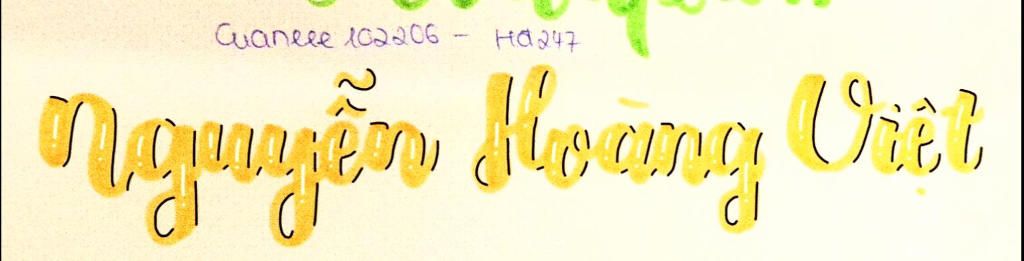 Cuaneee 102206 - Hd247
Nguyễn Hoàng Việt